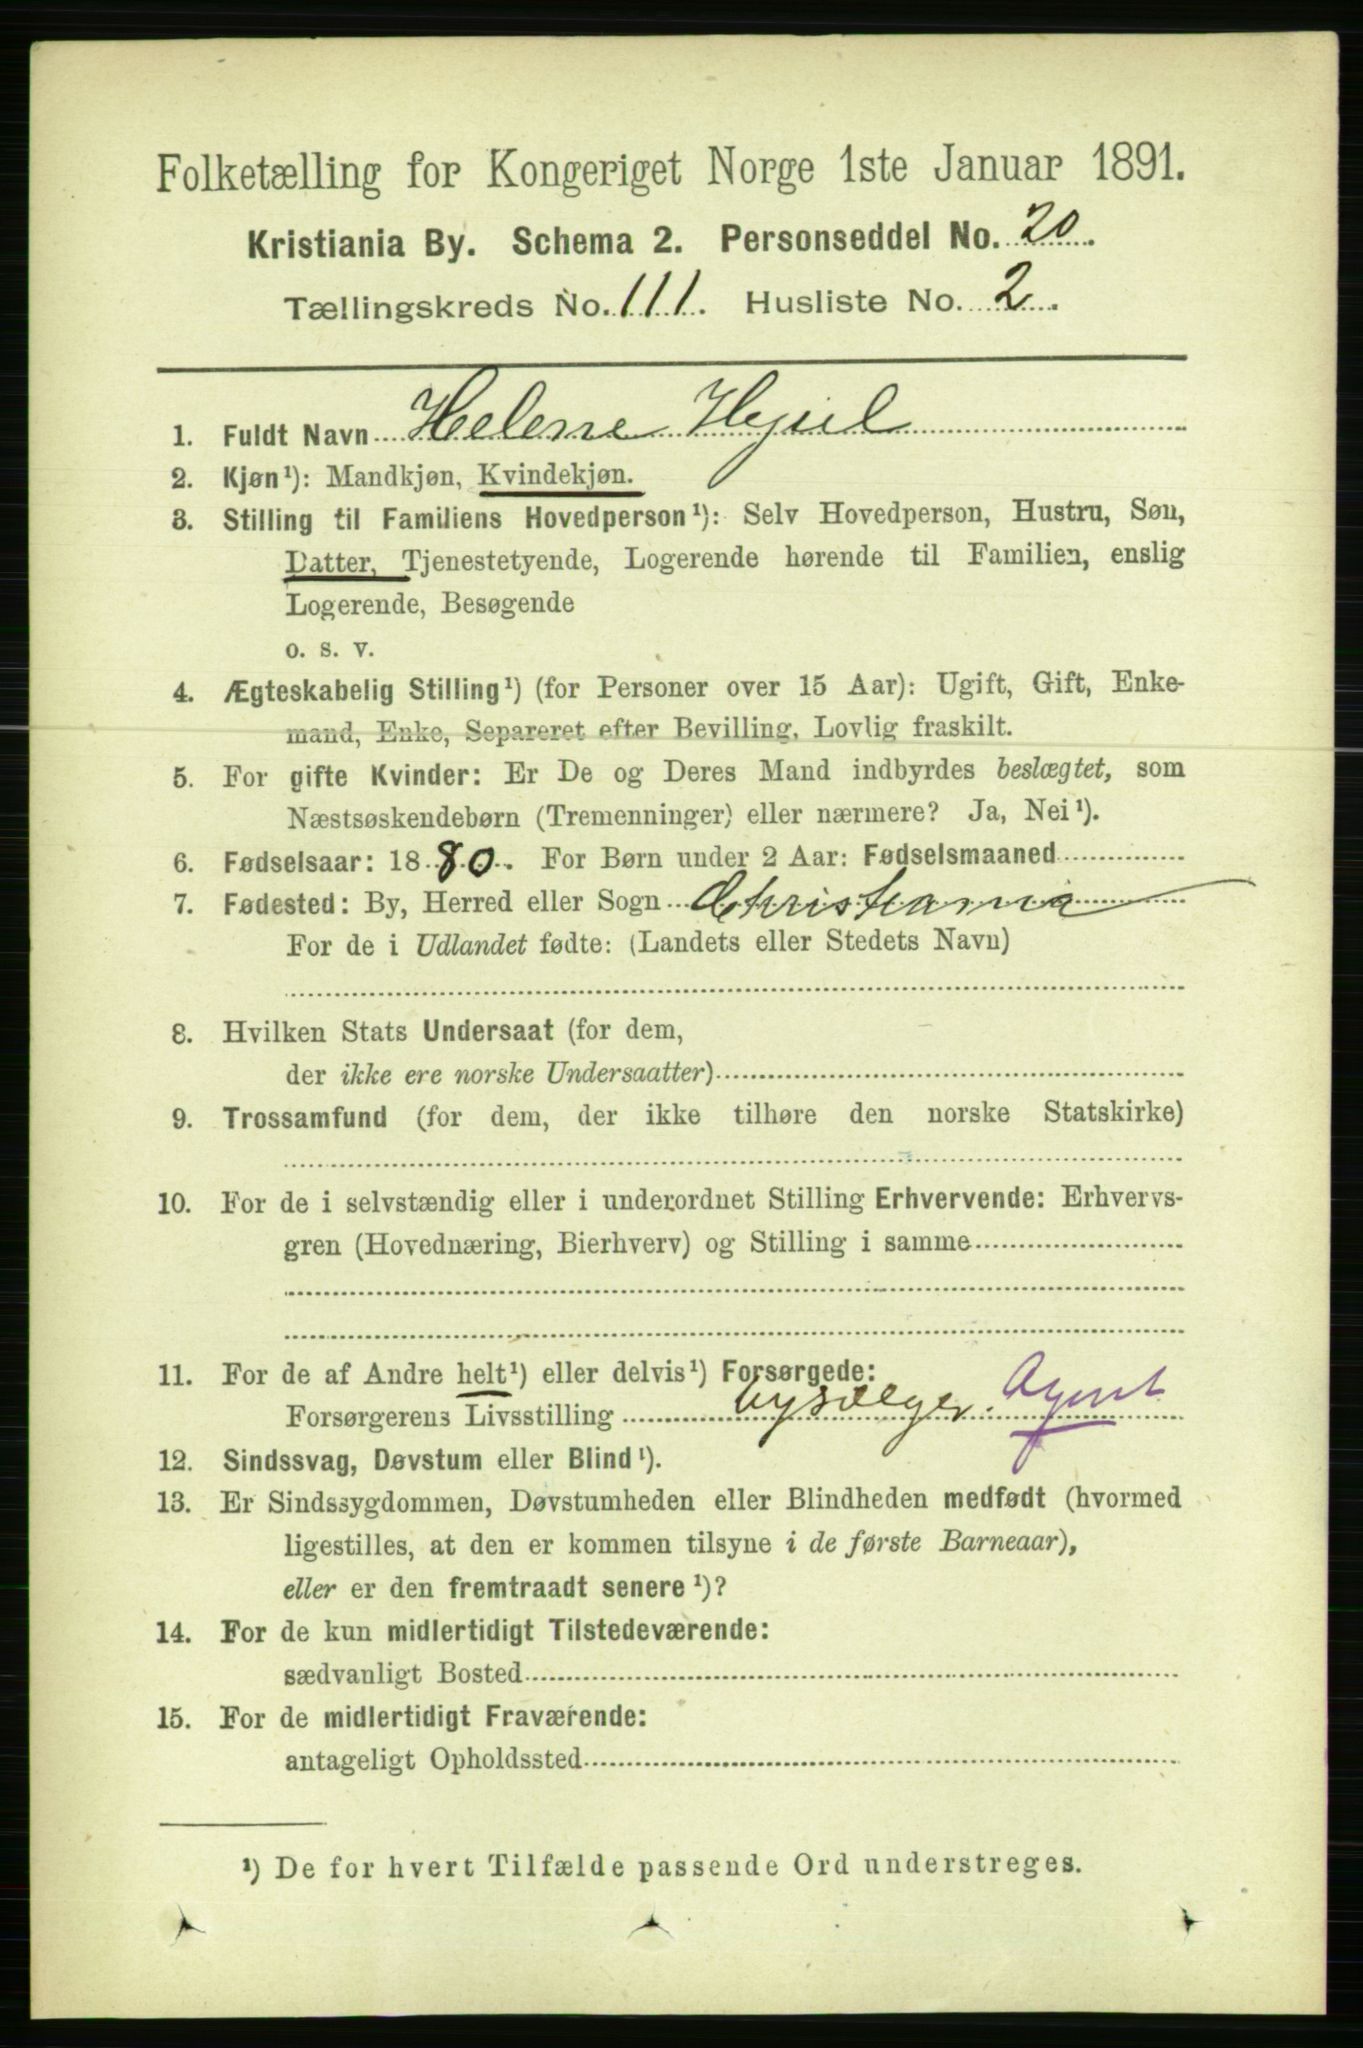 Folketælling for Kongeriget Norge 1ste Januar 1891.
Kristiania By. Schema 2. Personseddel No. 20.
Tællingskreds No. 111. Husliste No. 2.
1. Fuldt Navn Helene Hjul
2. Kjøn¹): Mandkjøn, Kvindekjøn.
3. Stilling til Familiens Hovedperson¹): Selv Hovedperson, Hustru, Søn,
Datter, Tjenestetyende, Logerende hørende til Familien, enslig
Logerende, Besøgende
o. s. v.
4. Ægteskabelig Stilling¹) (for Personer over 15 Aar): Ugift, Gift, Enke-
mand, Enke, Separeret efter Bevilling, Lovlig fraskilt.
5. For gifte Kvinder: Er De og Deres Mand indbyrdes beslægtet, som
Næstsøskendebørn (Tremenninger) eller nærmere? Ja, Nei¹).
6. Fødselsaar: 1880. For Børn under 2 Aar: Fødselsmaaned
7. Fødested: By, Herred eller Sogn Christiania
For de i Udlandet fødte: (Landets eller Stedets Navn)
8. Hvilken Stats Undersaat (for dem,
der ikke ere norske Undersaatter)
9. Trossamfund (for dem, der ikke tilhøre den norske Statskirke)
10. For de i selvstændig eller i underordnet Stilling Erhvervende: Erhvervs-
gren (Hovednæring, Bierhverv) og Stilling i samme
11. For de af Andre helt¹) eller delvis¹) Forsørgede:
Forsørgerens Livsstilling Agent
12. Sindssvag, Døvstum eller Blind¹).
13. Er Sindssygdommen, Døvstumheden eller Blindheden medfødt (hvormed
ligestilles, at den er kommen tilsyne i de første Barneaar),
eller er den fremtraadt senere¹)?
14. For de kun midlertidigt Tilstedeværende:
sædvanligt Bosted
15. For de midlertidigt Fraværende:
antageligt Opholdssted
¹) De for hvert Tilfælde passende Ord understreges.